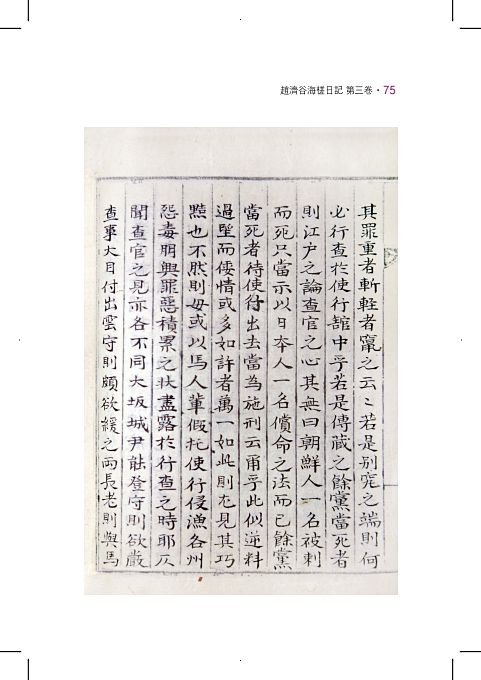 趙濟谷海槎日記 第三卷 • 75
其罪重者斬軽者竄之云〻若是別究之端則何
必行查扵使行舘中乎若是傳藏之餘黨當死者
則江户之論查官之心其無曰朝鮮人一名被刺
而死只當示以日夲人一名償命之法而已餘黨
當死者待使行出去當為施刑云甭乎此似逆料
過望而倭情或多如許者萬一如此則尤見其巧
㸃也不然則毋或以馬人輩假托使行侵漁各州
怨毒明興罪惡積累之狀盡露扵行查之時耶仄
聞查官之見亦各不同大坂城尹能登守則欲嚴
查事大目付出雲守則頗欲緩之兩長老則與馬